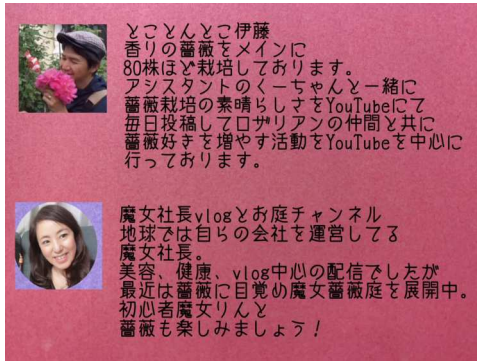 とことんとこ伊藤
香りの薔薇をメインに
80株ほど栽培しております。
アシスタントのくーちゃんと一緒に
薔薇栽培の素晴らしさをYouTubeにて
毎日投稿してロザリアンの仲間と共に
薔薇好きを増やす活動をYouTubeを中心に
行っております。
魔女社長vlogとお庭チャンネル
地球では自らの会社を運営してる
魔女社長。
美容、健康、vlog中心の配信でしたが
最近は薔薇に目覚め魔女薔薇庭を展開中。
初心者魔女りんと
薔薇も楽しみましょう！